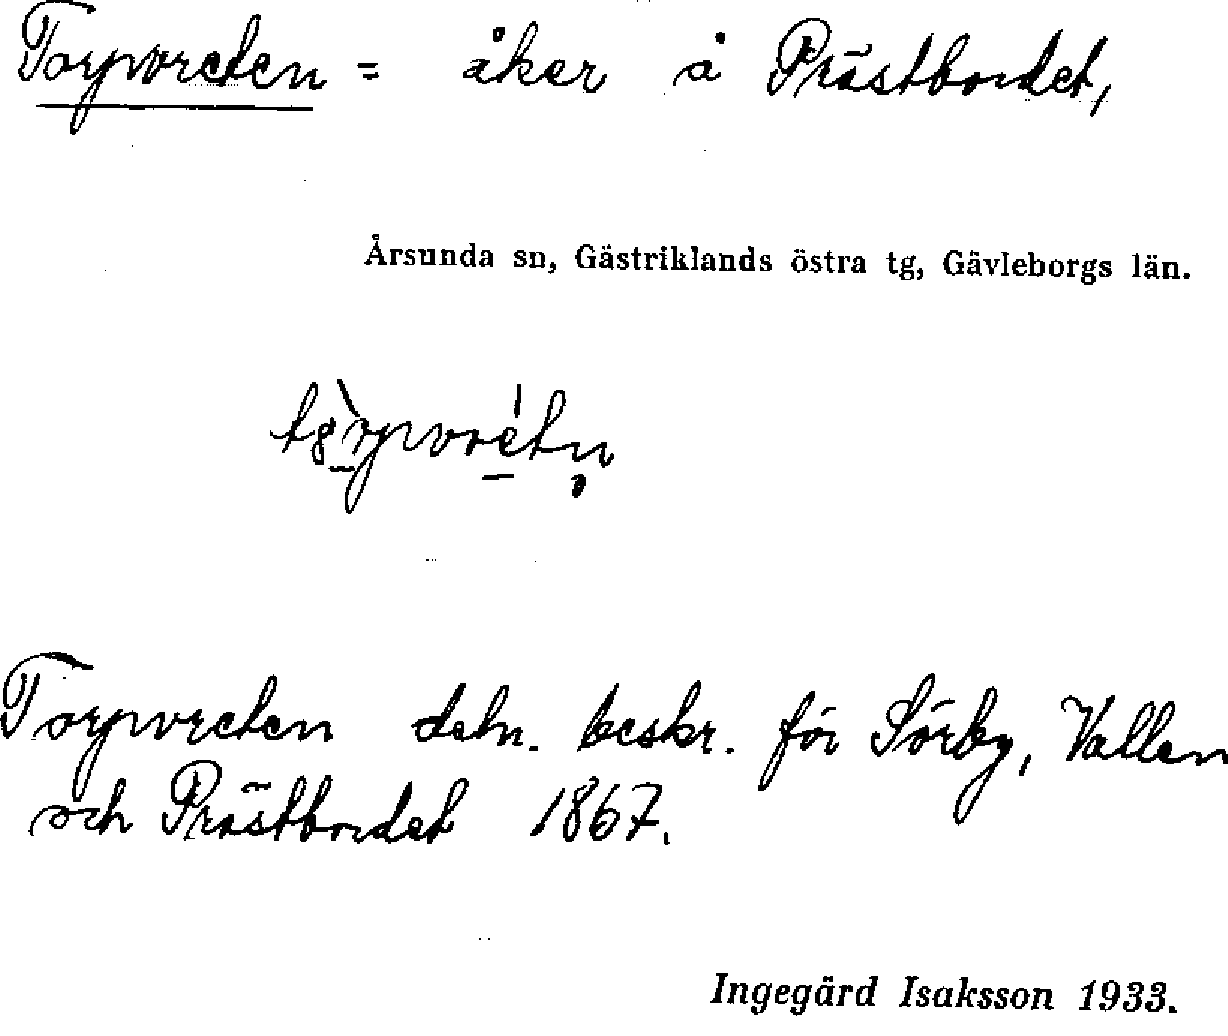 Torpvreten = åker å Prästbordet,
Årsunda sn, Gästriklands östra tg, Gävleborgs län.
Torpvreten deln. beskr. för Sörby, Vallen
och Prästbordet 1867.
Ingegärd Isaksson 1933.